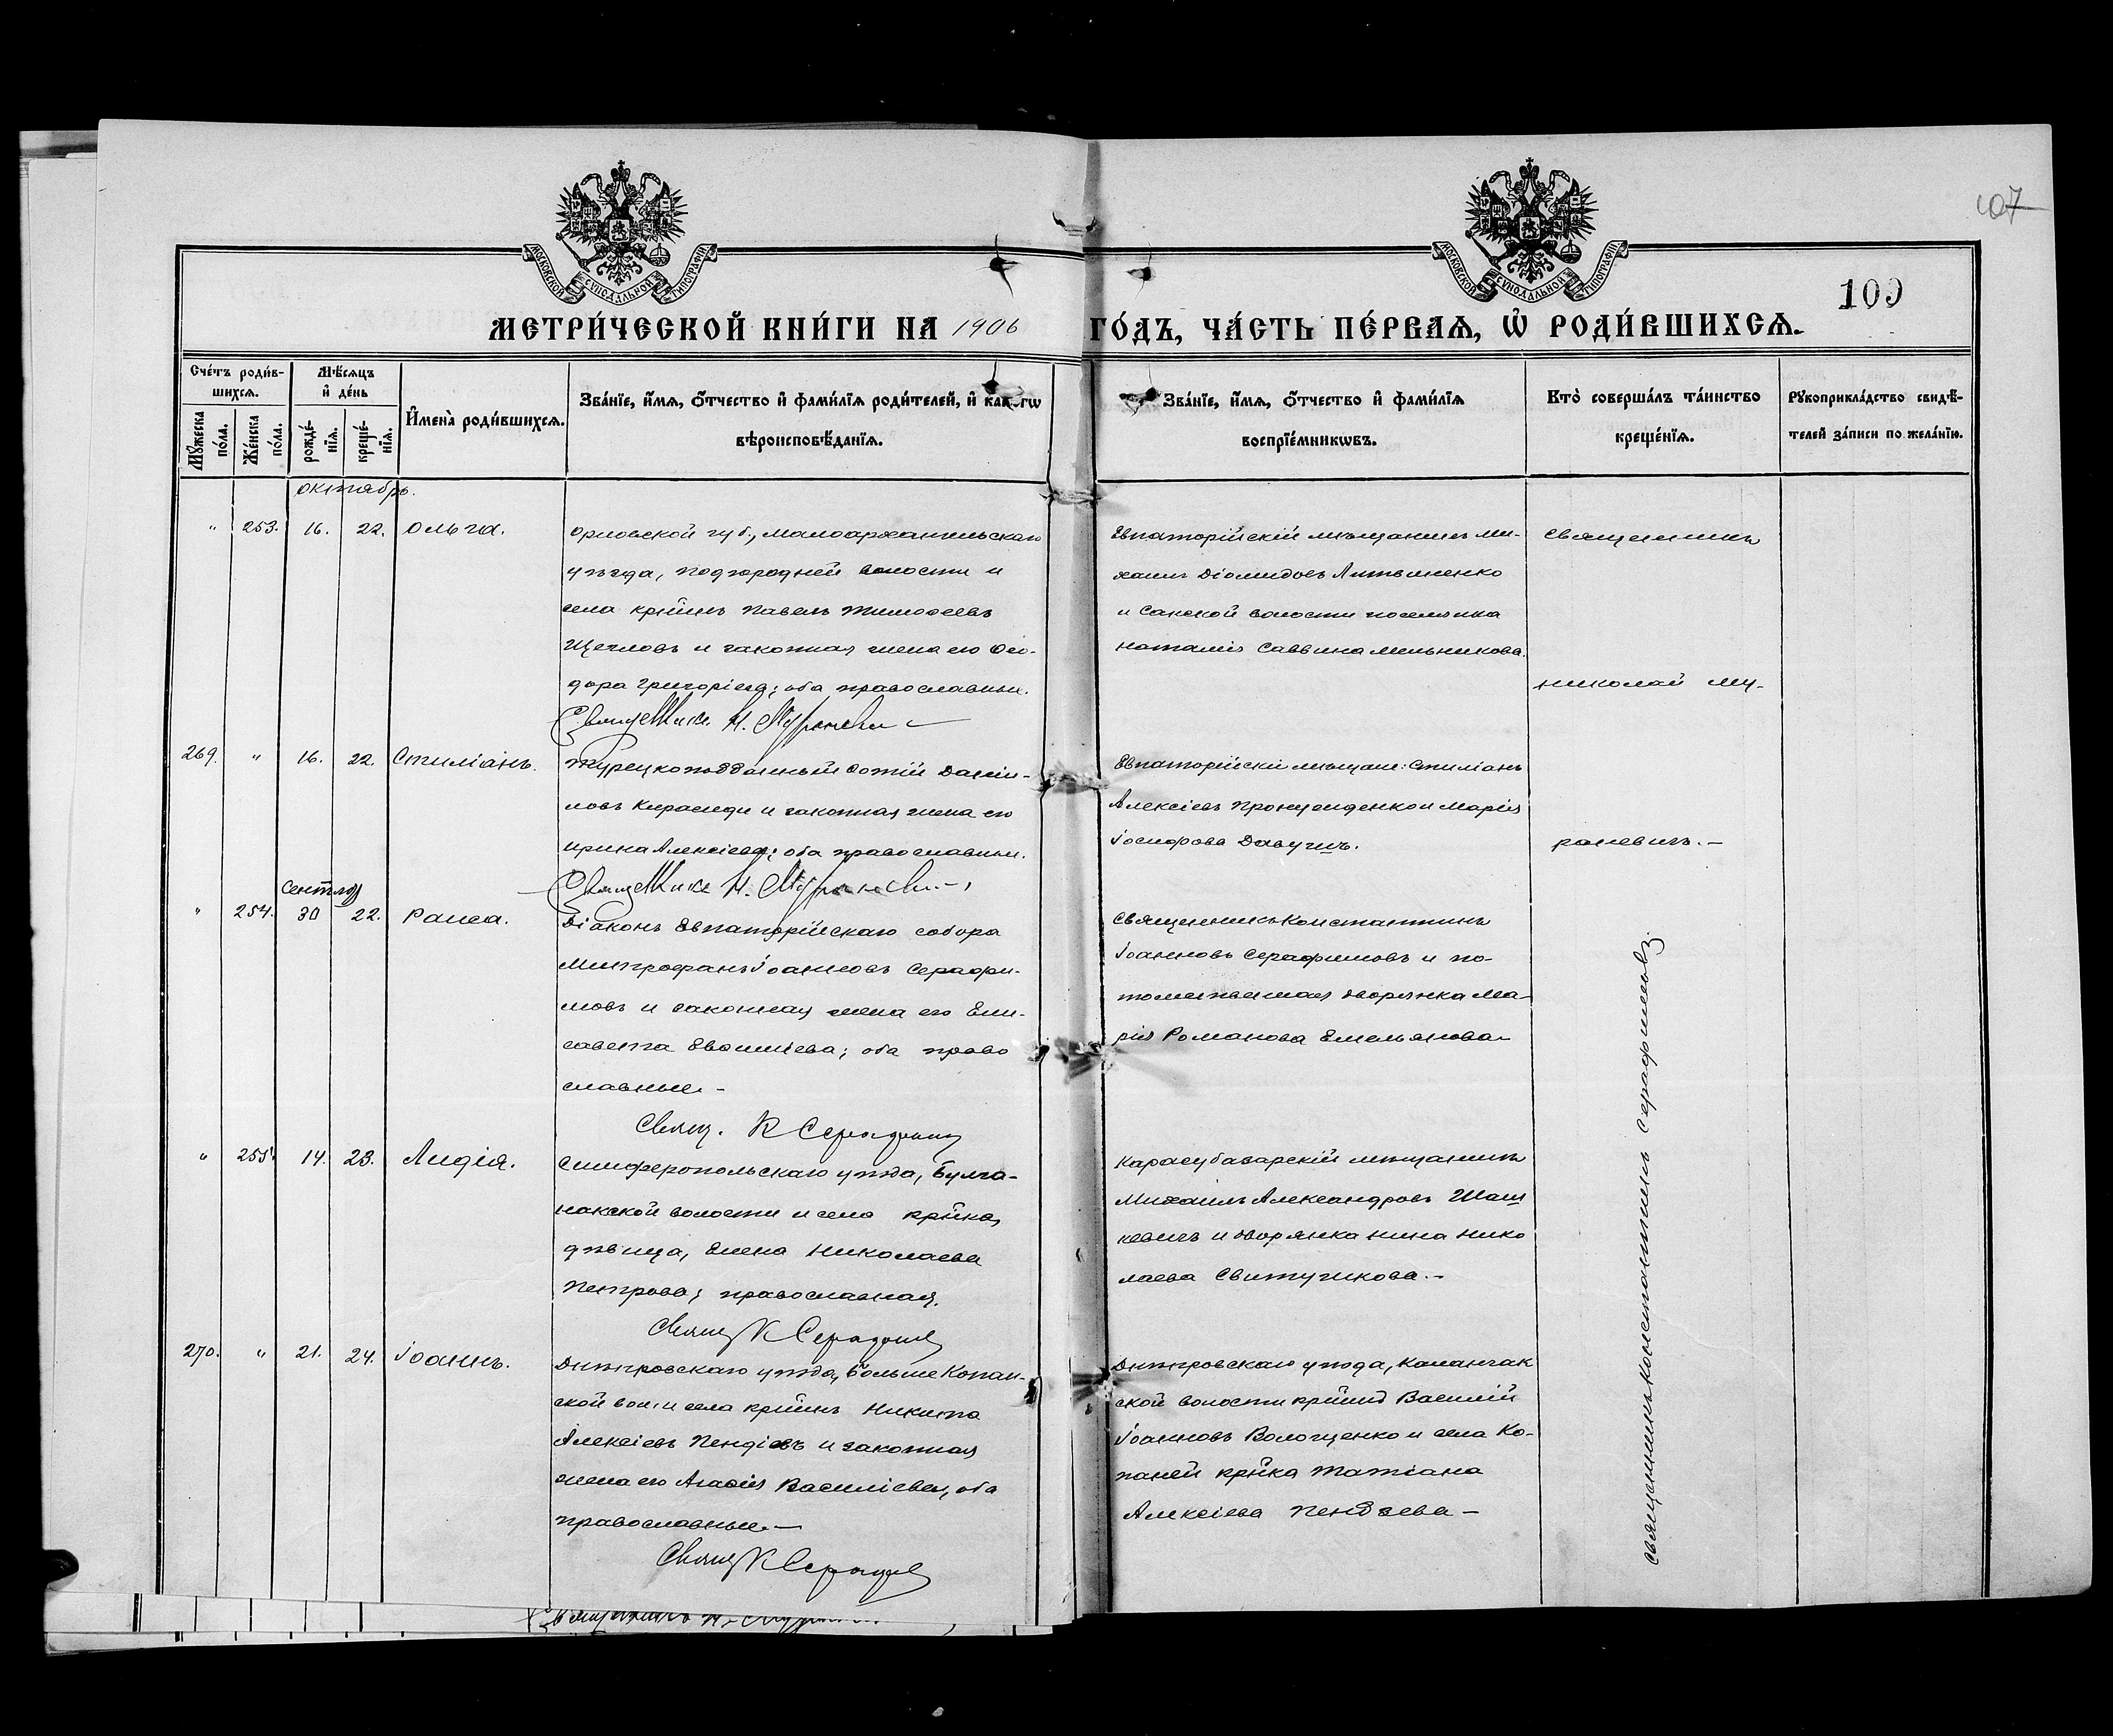 МОСКОВСКОЙ СѴНОДАЛЬНОЙ ТИПОГРАФІИ
МОСКОВСКОЙ СѴНОДАЛЬНОЙ ТИПОГРАФІИ
107
109
МЕТРИ́ЧЕСКОЙ КНИ́ГИ НА 1906 ГО́ДЪ, ЧА́СТЬ ПЕ́РВАѦ, Ѡ҆ РОДИ́ВШИХСѦ.
Сче́тъ роди́в-
шихсѧ.
Мꙋ́жеска по́ла.
Же́нска по́ла.
Мѣ́сѧцъ
и҆ де́нь
рожде́-
нїѧ.
креще́-
нїѧ.
И҆мена̀ роди́вшихсѧ.
Зва́нїе, и҆́мѧ, ѻ҆́тчество и҆ фами́лїѧ роди́телей, и҆ како́гѡ
вѣроисповѣ́данїѧ.
Зва́нїе, и҆́мѧ, ѻ҆́тчество и҆ фами́лїѧ
воспрїе́мникѡвъ.
Кто̀ соверша́лъ та́инство
креще́нїѧ.
Рꙋкоприкла́дство свидѣ́-
телей за́писи по жела́нїю.
октябрь.
" 253. 16. 22. Ольга.
Орловской губ., Малоархангельскаго
уѣзда, Подгородней волости и
села кр-инъ Павелъ Тимоѳеевъ
Щегловъ и законная жена его Ѳео-
дора Григоріева; оба православные.
Священникъ Н. Мураневичъ
Евпаторійскій мѣщанинъ Ми-
хаилъ Діомидовъ Литвиненко
и Сакской волости поселянка
Наталія Саввина Мельникова.
Священникъ
Николай Му-
раневичъ.-
269. " 16. 22. Стиліанъ.
Турецкоподданный Фотій Дани-
ловъ и законная жена его
Ирина Алексіева; оба православные.
Священникъ Н. Мураневичъ
Евпаторійскіе мѣщане: Стиліанъ
Алексіевъ и Марія
Іосифова Давушъ.
Сентября
" 254. 30 22. Раиса.
Діаконъ Евпаторійскаго собора
Митрофанъ Іоанновъ Серафи-
мовъ и законная жена его Ели-
савета Евфиміева; оба право
славные.-
Свящ. К Серафимовъ
Священникъ Константинъ
Іоанновъ Серафимовъ и по-
томственная дворянка Ма-
рія Романова Емельянова
Священникъ Константинъ Серафимовъ.
" 255. 14. 23. Лидія.
Симферопольскаго уѣзда, Булга-
накской волости и села кр-нка,
дѣвица, Елена Николаева
Петрова; православная.
Свящ К Серафимовъ
Карасубазарскій мѣщанинъ
Михаилъ Александровъ Шаш
кевичъ и дворянка Нина Нико
лаева Свитушкова.-
270. " 21. 24. Іоаннъ.
Днѣпровскаго уѣзда, Больше Копан-
ской вол. и села кр-инъ Никита
Алексіевъ Пендіевъ и законная
жена его Агаѳія Василіева, оба
православные.-
Свящ К Серафимовъ
Днѣпровскаго уѣзда, Каланчак
ской волости кр-инъ Василій
Іоанновъ Волощенко и села Ко-
паней кр-нка Татіана
Алексіева Пендзева-